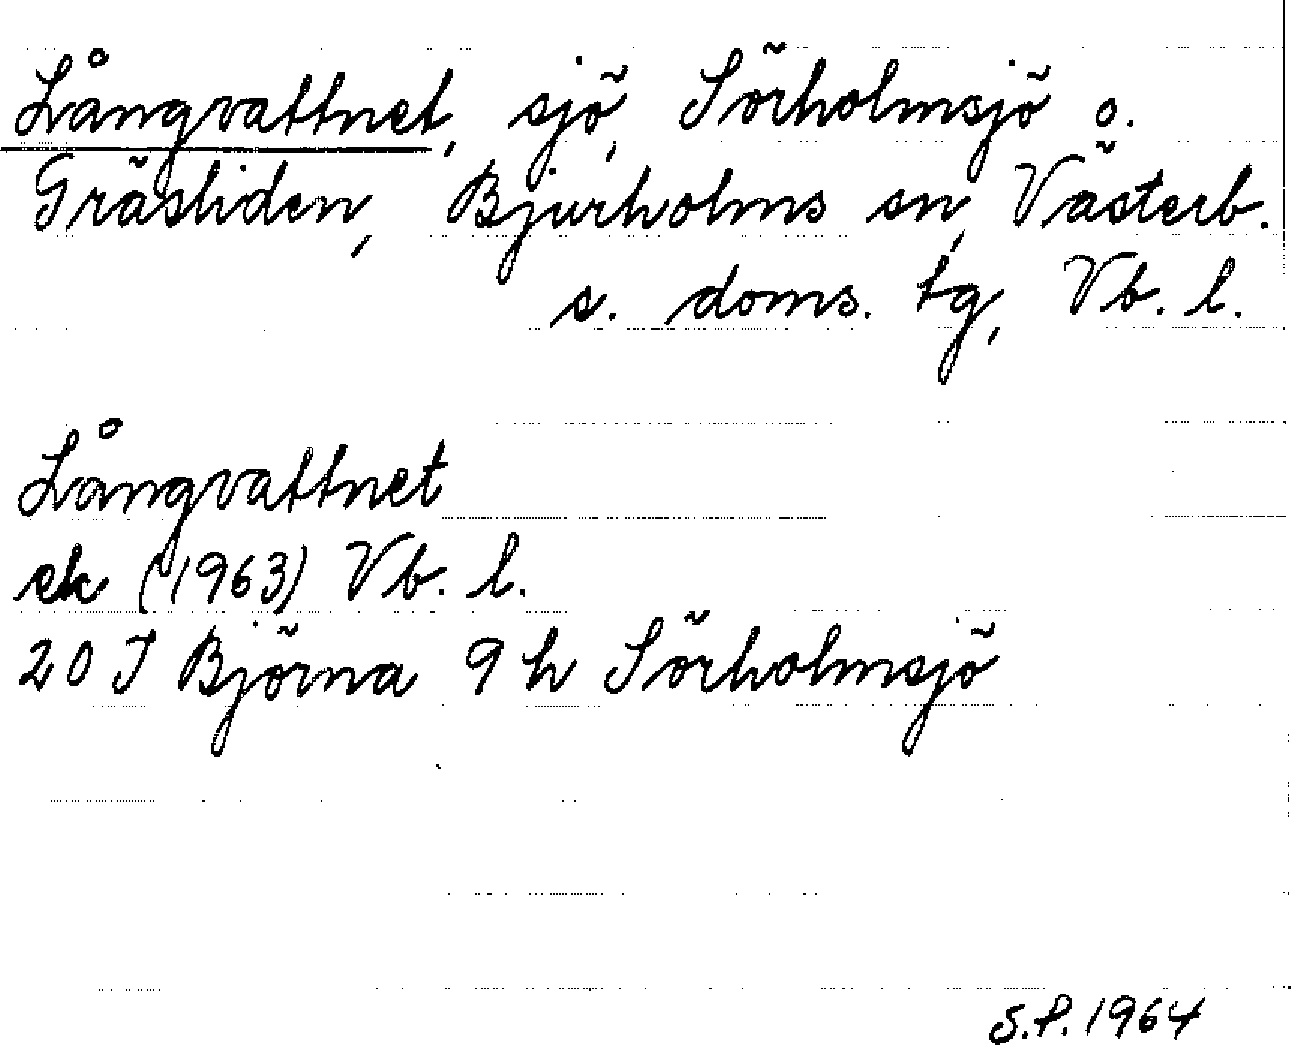 Långvattnet, sjö, Sörholmsjö o.
Gräsliden, Bjurholms sn, Västerb.
s. doms. tg, Vb. l.
Långvattnet
ek (1963) Vb. l.
20 J Björna 9 h Sörholmsjö
S.P. 1964